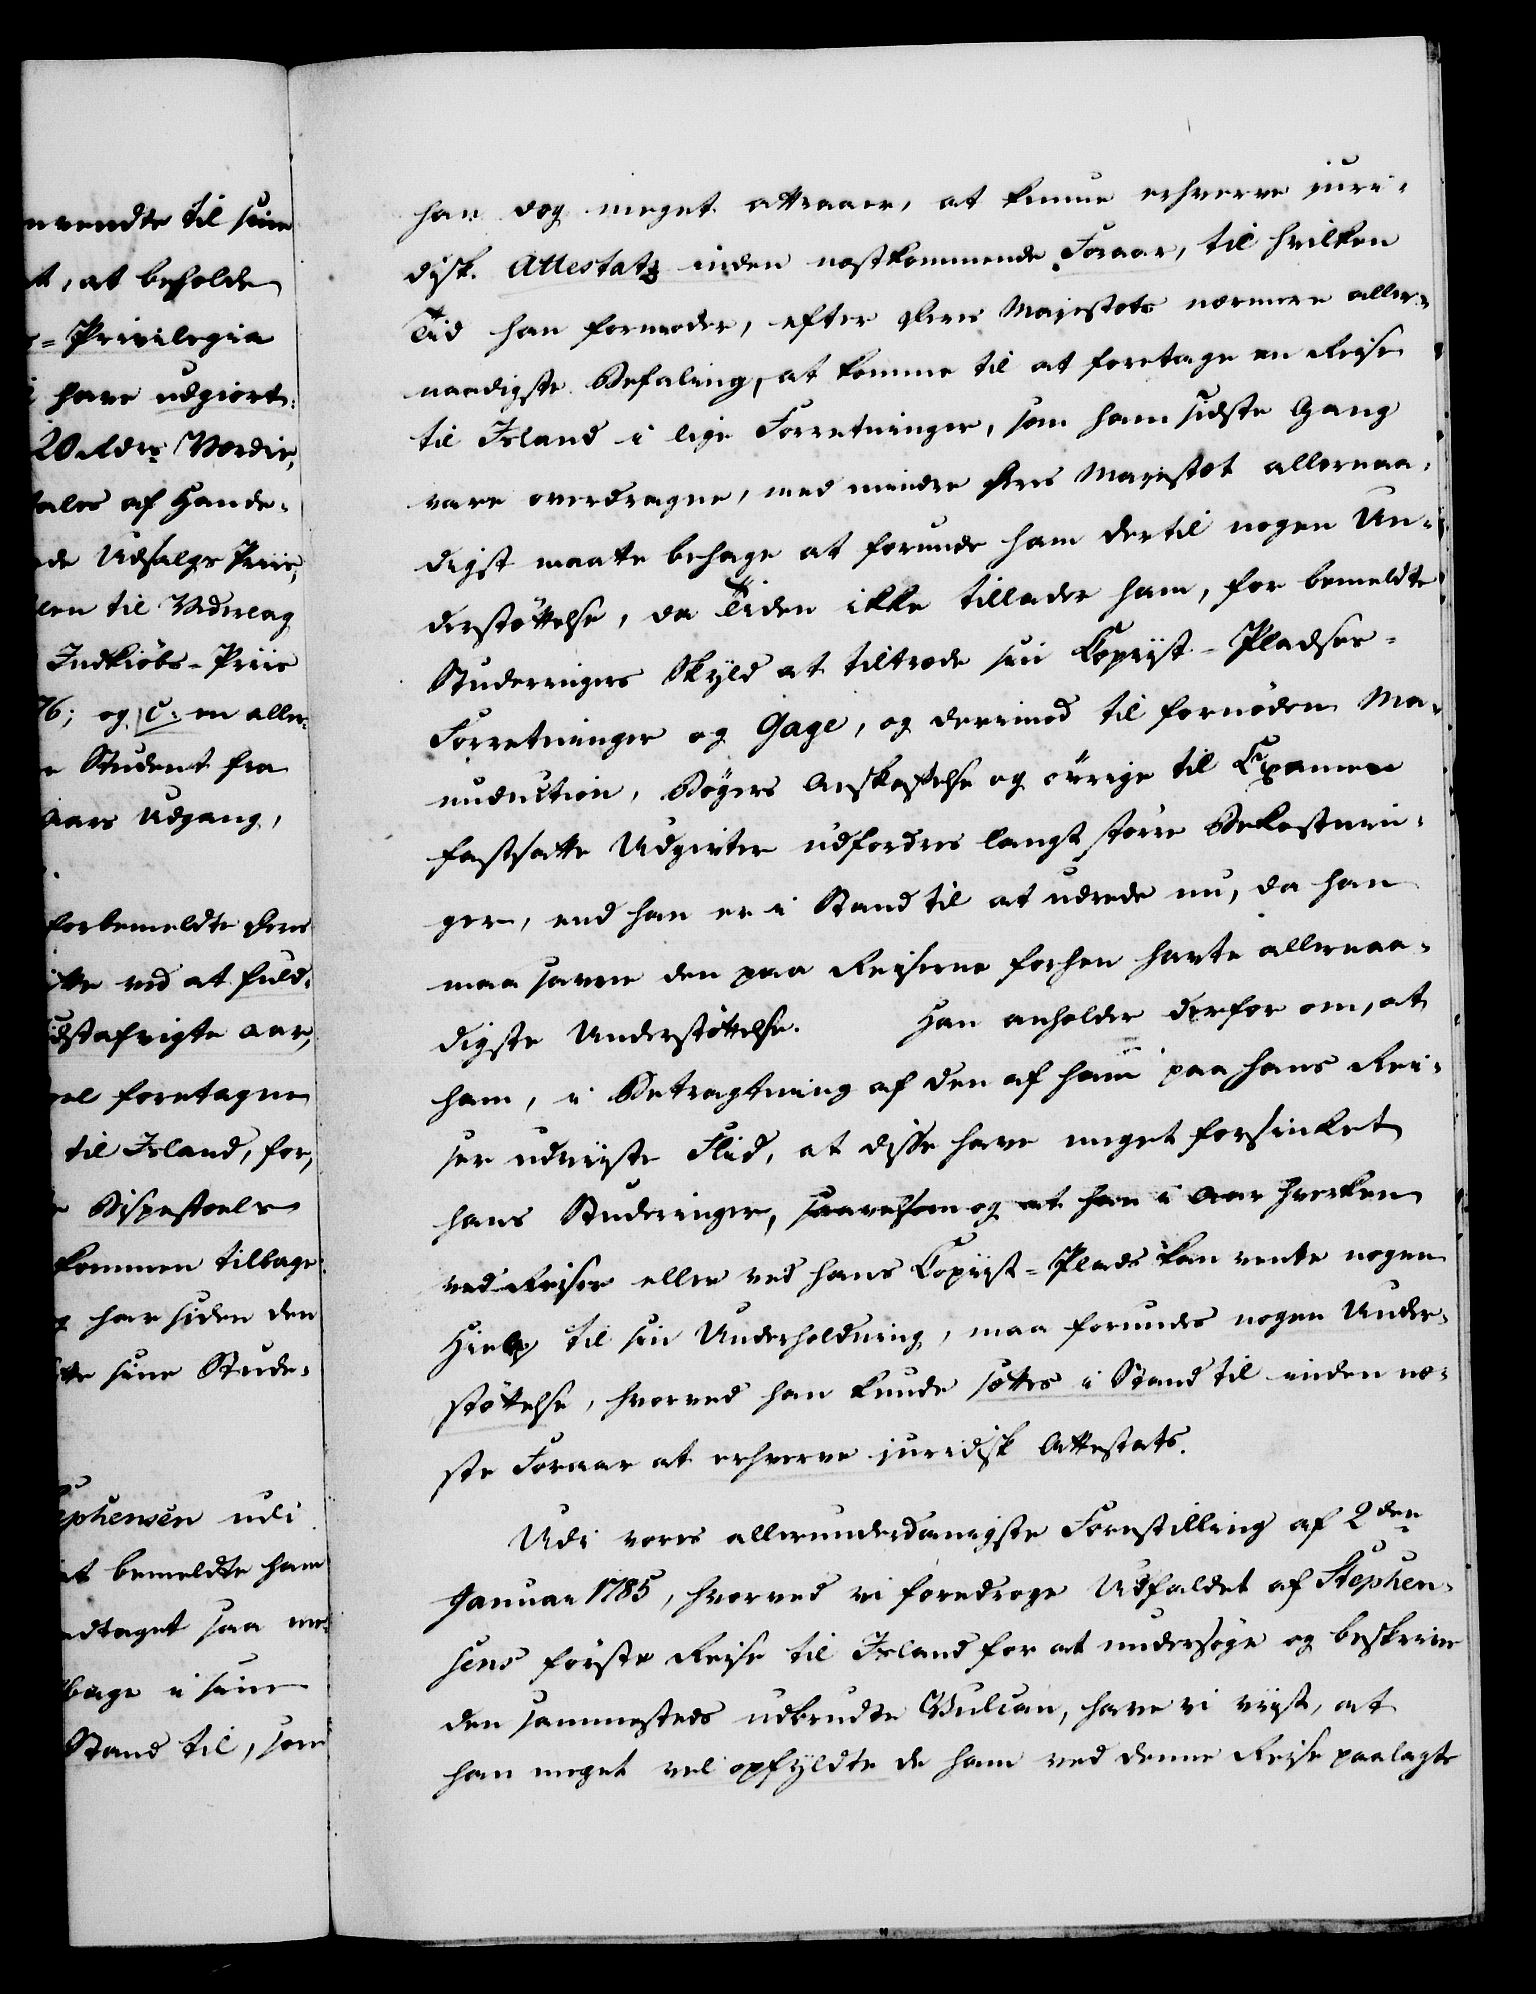 nvendte til sine
t, at beholde
= Privilegia
have udgiort
20 Rdrs Værdie,
tales af Hande-
de Udsalgs Priis,
len til Vederlag
Indkiøbs-Priis
76; og C: en aller-
Student fra
Aars Udgang,
forbemeldte Deres
tte ved at fuld-
idstafvigte Aar,
el foretagne
til Island, for,
Bispestoels
kommen tilbage
har siden den
tte sine Stude-
ephensen udi
t bemeldte ham
dtaget saa me-
bage i sine
Stand til, som
han dog meget attraaer, at kunne erhverve juri-
disk Attestatz inden næstkommende Foraar, til hvilken
Tid han formoder, efter Deres Majestæts nærmere aller-
naadigste Befaling, at komme til at foretage en Reise
til Island i lige Forretninger, som ham sidste Gang
vare overdragne, med mindre Deres Majestæt allernaa-
digst maatte behage at forunde ham dertil nogen Un-
derstøttelse, da Tiden ikke tillader ham, for bemeldte
Studeringers Skyld at tiltræde sin Copiist-Pladses-
Forretninger og Gage, og derimod til fornøden Ma-
nuduction, Bøgers Anskaffelse og øvrige til Examen
fastsatte Udgivter udfordres langt større Bekostnin-
ger, end han er i Stand til at udrede nu, da han
maa savne den paa Reiserne forhen havte allernaa-
digste Understøttelse. Han anholder derfor om, at
ham, i Betragtning af den af ham paa hans Rei-
ser udviiste Flid, at disse have meget forsinket
hans Studeringer, saavelsom og at han i Aar hverken
ved Reiser eller ved hans Copiist-Plads kan vente nogen
Hielp til sin Underholdning, maa forundes nogen Under-
støttelse, hvorved han kunde sættes i Stand til inden næ-
ste Foraar at erhverve juridisk Attestats.
Udi vores allerunderdanigste Forestilling af 2den
Januar 1785, hvorved vi foredroge Udfaldet af Stephen-
sens første Reise til Island for at undersøge og beskrive
den sammesteds udbrudte Vulcan, have vi viist, at
han meget vel opfyldte de ham ved denne Reise paalagte